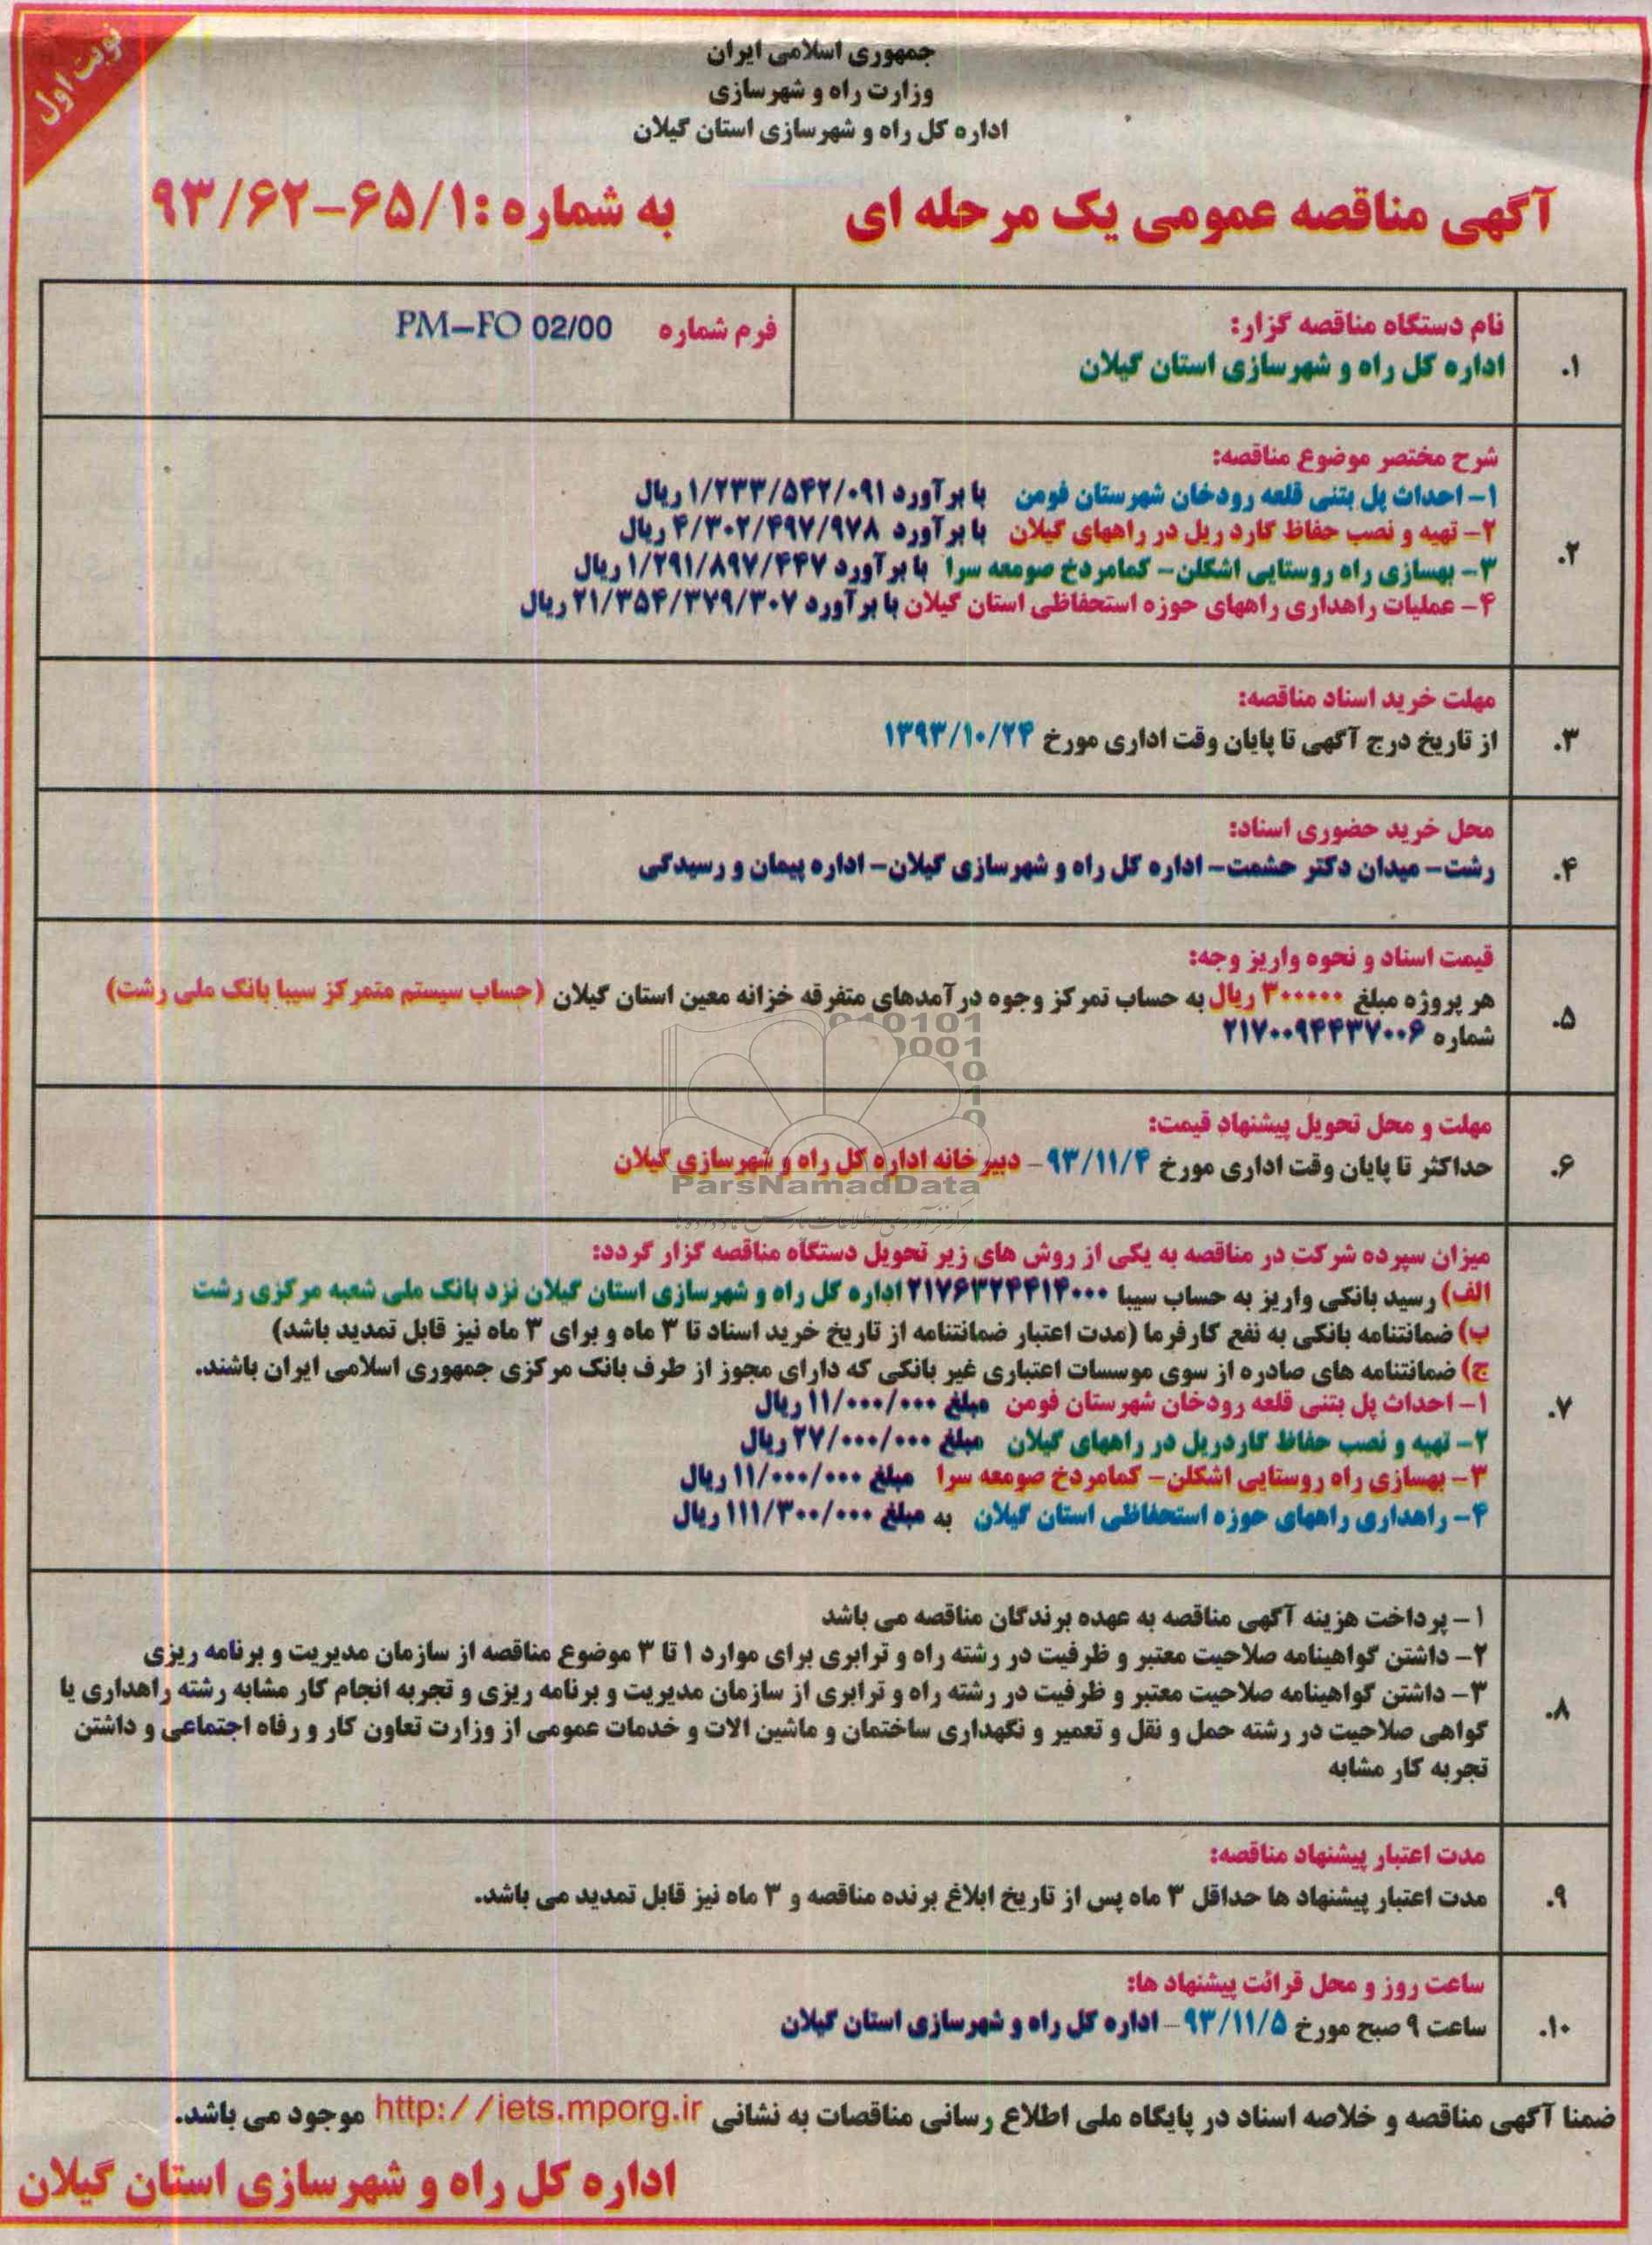 نوبت اول
جمهوری اسلامی ایران
وزارت راه و شهرسازی
اداره کل راه و شهرسازی استان گیلان
آگهی مناقصه عمومی یک مرحله ای به شماره :۹۳/۶۲-۶۵/۱
۱.
نام دستگاه مناقصه گزار:
اداره کل راه و شهرسازی استان گیلان
فرم شماره PM-FO 02/00
۲.
شرح مختصر موضوع مناقصه:
۱- احداث پل بتنی قلعه رودخان شهرستان فومن با برآورد ۱/۲۳۳/۵۴۲/۰۹۱ ریال
۲- تهیه و نصب حفاظ گارد ریل در راههای گیلان با برآورد ۴/۳۰۲/۴۹۷/۹۷۸ ریال
۳- بهسازی راه روستایی اشکلن- کمامردخ صومعه سرا با برآورد ۱/۲۹۱/۸۹۷/۴۴۷ ریال
۴- عملیات راهداری راههای حوزه استحفاظی استان گیلان با برآورد ۲۱/۳۵۴/۳۷۹/۳۰۷ ریال
۳.
مهلت خرید اسناد مناقصه:
از تاریخ درج آگهی تا پایان وقت اداری مورخ ۱۳۹۳/۱۰/۲۴
۴.
محل خرید حضوری اسناد:
رشت- میدان دکتر حشمت- اداره کل راه و شهرسازی گیلان- اداره پیمان و رسیدگی
۵.
قیمت اسناد و نحوه واریز وجه:
هر پروژه مبلغ ۳۰۰۰۰۰ ریال به حساب تمرکز وجوه درآمدهای متفرقه خزانه معین استان گیلان (حساب سیستم متمرکز سیبا بانک ملی رشت)
شماره ۲۱۷۰۰۹۴۴۳۷۰۰۶
۶.
مهلت و محل تحویل پیشنهاد قیمت:
حداکثر تا پایان وقت اداری مورخ ۹۳/۱۱/۴- دبیرخانه اداره کل راه و شهرسازی گیلان
ParsNamadData
۷.
میزان سپرده شرکت در مناقصه به یکی از روش های زیر تحویل دستگاه مناقصه گزار گردد:
الف) رسید بانکی واریز به حساب سیبا ۲۱۷۶۳۲۴۴۱۴۰۰۰ اداره کل راه و شهرسازی استان گیلان نزد بانک ملی شعبه مرکزی رشت
ب) ضمانتنامه بانکی به نفع کارفرما (مدت اعتبار ضمانتنامه از تاریخ خرید اسناد تا ۳ ماه و برای ۳ ماه نیز قابل تمدید باشد)
ج) ضمانتنامه های صادره از سوی موسسات اعتباری غیر بانکی که دارای مجوز از طرف بانک مرکزی جمهوری اسلامی ایران باشند.
۱- احداث پل بتنی قلعه رودخان شهرستان فومن مبلغ ۱۱/۰۰۰/۰۰۰ ریال
۲- تهیه و نصب حفاظ گاردریل در راههای گیلان مبلغ ۲۷/۰۰۰/۰۰۰ ریال
۳- بهسازی راه روستایی اشکلن- کمامردخ صومعه سرا مبلغ ۱۱/۰۰۰/۰۰۰ ریال
۴- راهداری راههای حوزه استحفاظی استان گیلان به مبلغ ۱۱۱/۳۰۰/۰۰۰ ریال
۸.
۱- پرداخت هزینه آگهی مناقصه به عهده برندگان مناقصه می باشد
۲- داشتن گواهینامه صلاحیت معتبر و ظرفیت در رشته راه و ترابری برای موارد ۱ تا ۳ موضوع مناقصه از سازمان مدیریت و برنامه ریزی
۳- داشتن گواهینامه صلاحیت معتبر و ظرفیت در رشته راه و ترابری از سازمان مدیریت و برنامه ریزی و تجربه انجام کار مشابه رشته راهداری یا
گواهی صلاحیت در رشته حمل و نقل و تعمیر و نگهداری ساختمان و ماشین الات و خدمات عمومی از وزارت تعاون کار و رفاه اجتماعی و داشتن
تجربه کار مشابه
۹.
مدت اعتبار پیشنهاد مناقصه:
مدت اعتبار پیشنهاد ها حداقل ۳ ماه پس از تاریخ ابلاغ برنده مناقصه و ۳ ماه نیز قابل تمدید می باشد.
۱۰.
ساعت روز و محل قرائت پیشنهاد ها:
ساعت ۹ صبح مورخ ۹۳/۱۱/۵- اداره کل راه و شهرسازی استان گیلان
ضمنا آگهی مناقصه و خلاصه اسناد در پایگاه ملی اطلاع رسانی مناقصات به نشانی http://iets.mporg.ir موجود می باشد.
اداره کل راه و شهرسازی استان گیلان